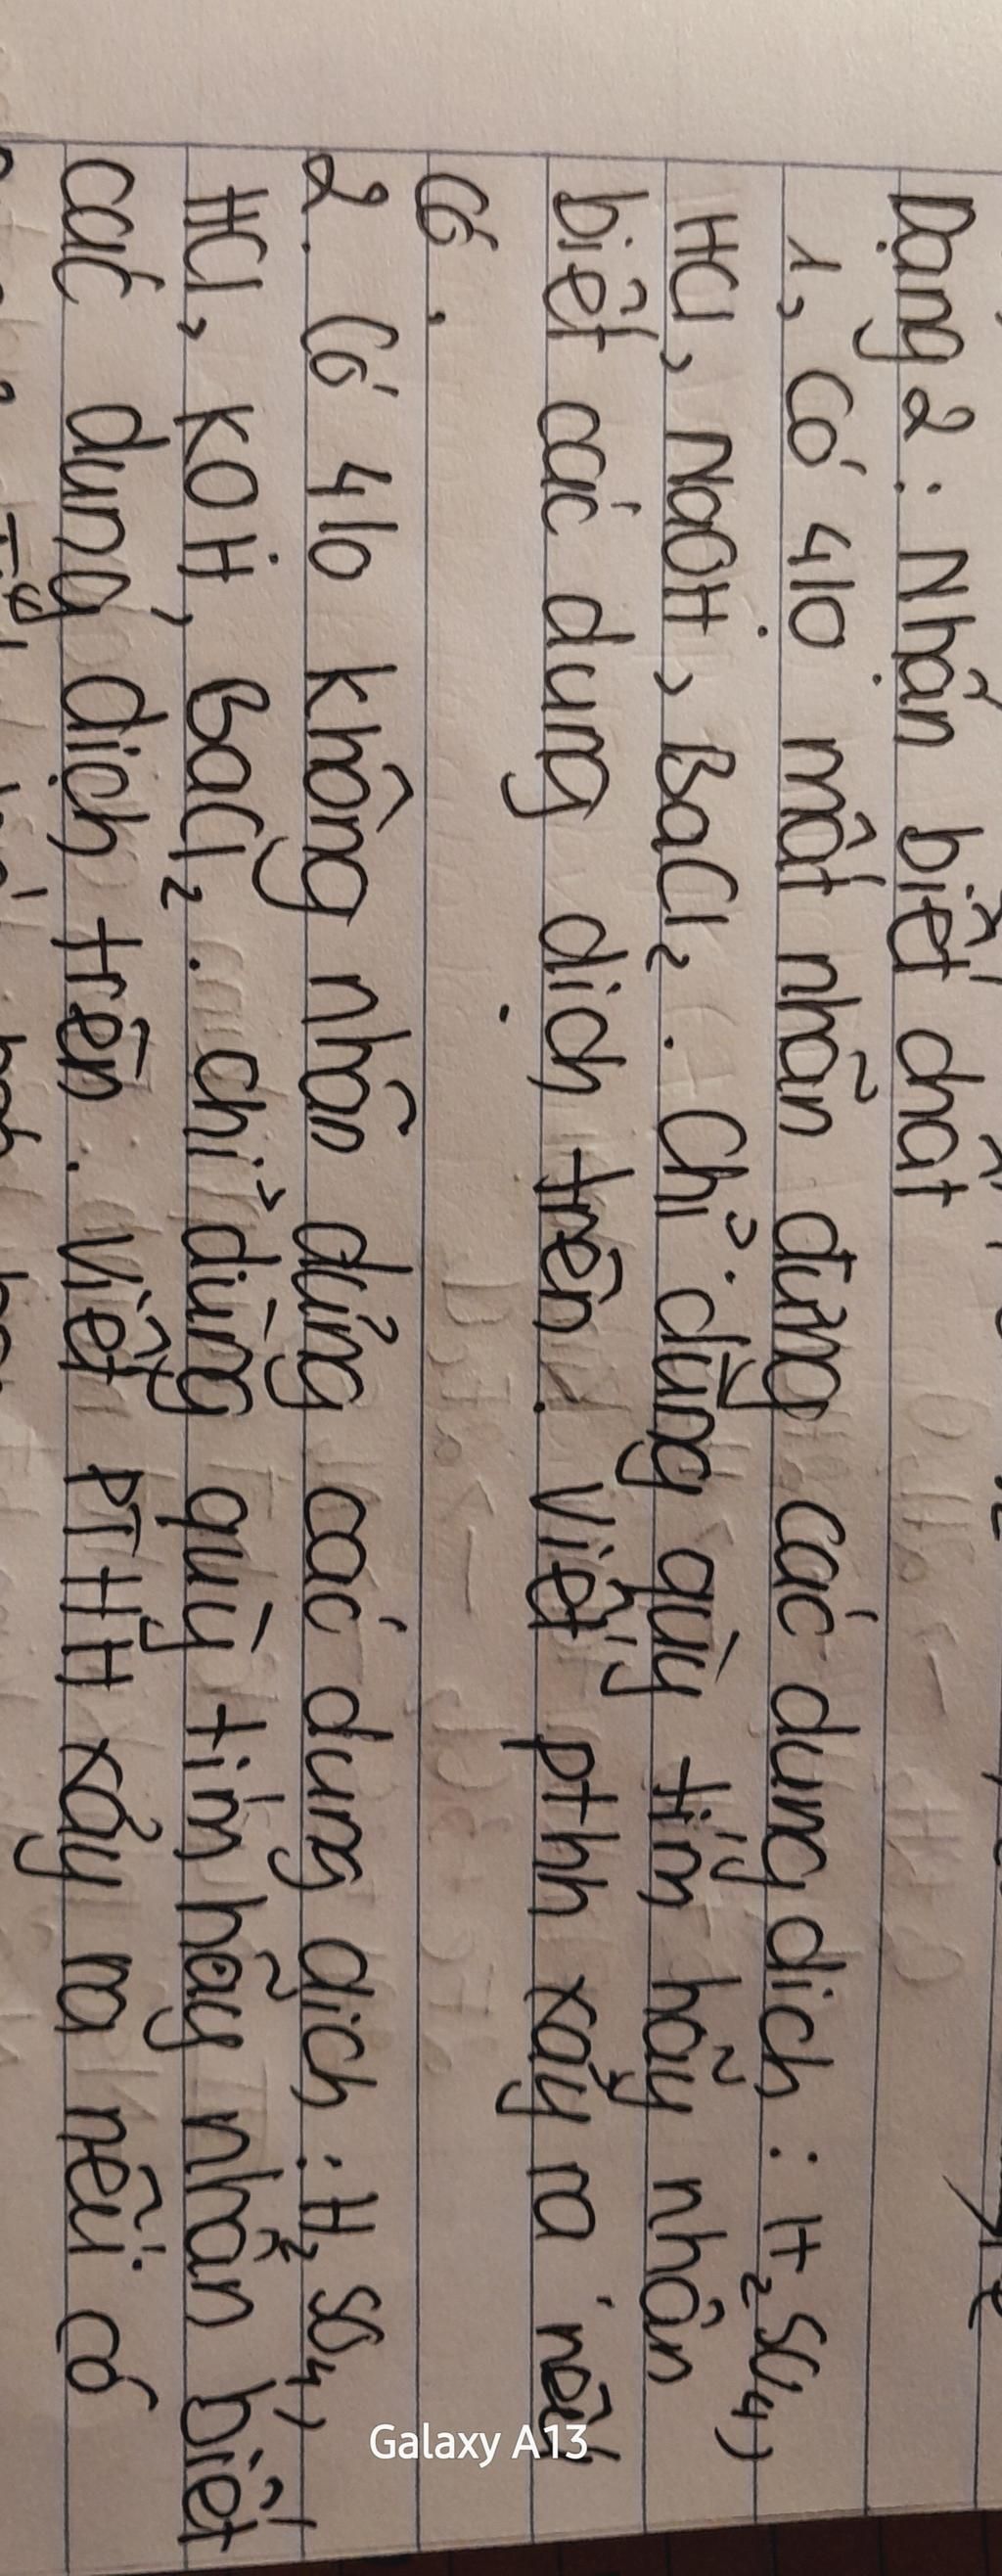 Dạng 2 : Nhận biết chất
1, Có 4 lọ mất nhãn đựng các dung dịch : H₂SO₄,
HCl, NaOH, BaCl₂. Chỉ dùng quỳ tím hãy nhận
biết các dung dịch trên. Viết pthh xảy ra nếu
có.
2. Có 4 lọ không nhãn đựng các dung dịch : H₂SO₄,
HCl, KOH, BaCl₂. chỉ dùng quỳ tím hãy nhận biết
các dung dịch trên. Viết PTHH xảy ra nếu có
Galaxy A13